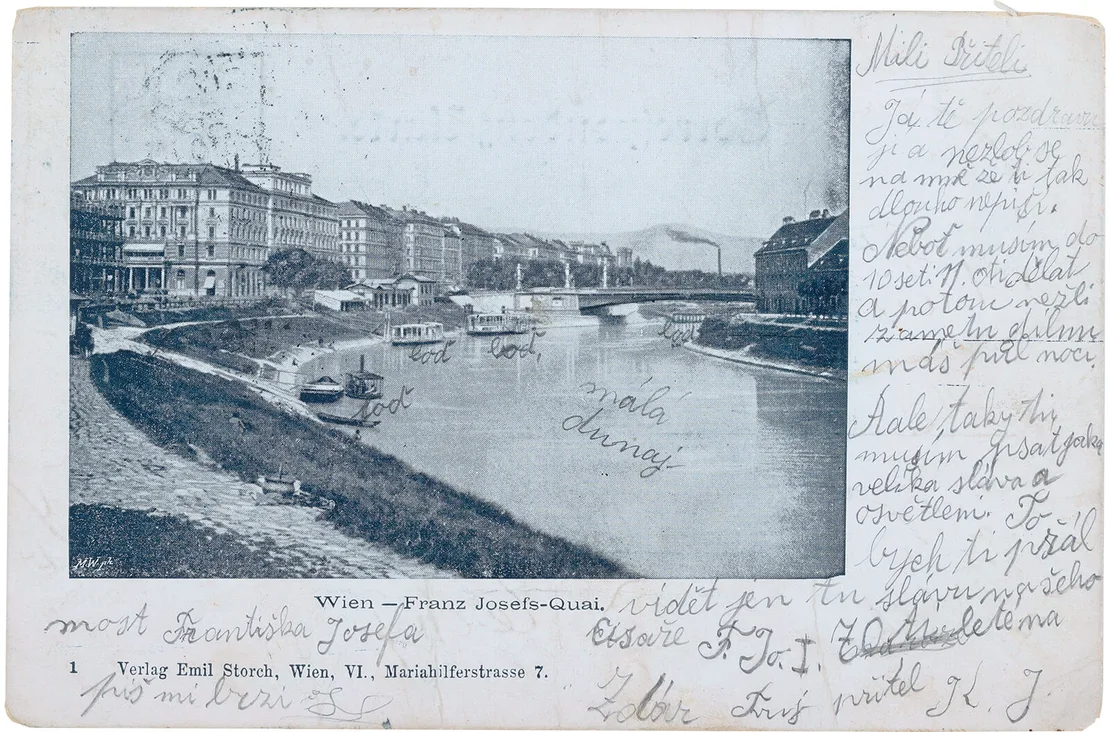 Milí Příteli
Já tě pozdravu
ji a nezlob se
na mně že ti tak
dlouho nepíši.
Neboť musím do
10 seti 11. otidělat
a potom nežli
zametu dílnu
máš půl noci.
Aale taky ti
musím psat jaka
velika sláva a
osvětlení. To
bych ti přál
vidět jen tu slávu našeho
Cisaře F. Jo. I.
letěma
Zdár Tvuj přítel K. J.
loď loď, loď
loď
málá
dunaj
M.W. ph.
Wien — Franz Josefs-Quai.
most Františka Josefa
1 Verlag Emil Storch, Wien, VI., Mariahilferstrasse 7.
piš mi brzi